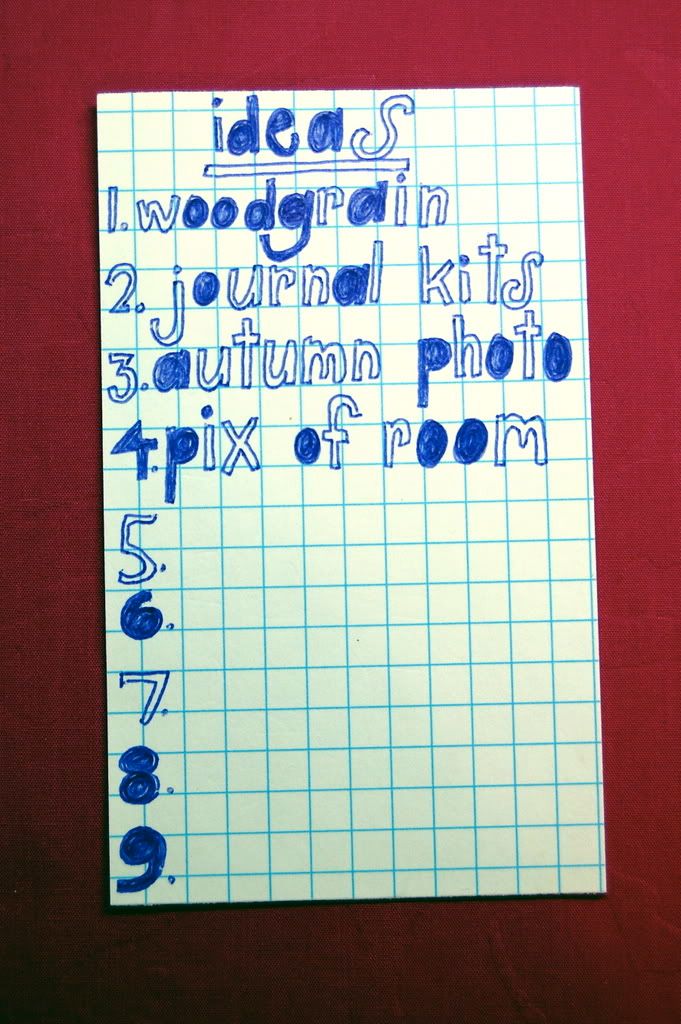 ideas
1. woodgrain
2. journal kits
3. autumn photo
4. pix of room
5.
6.
7.
8.
9.